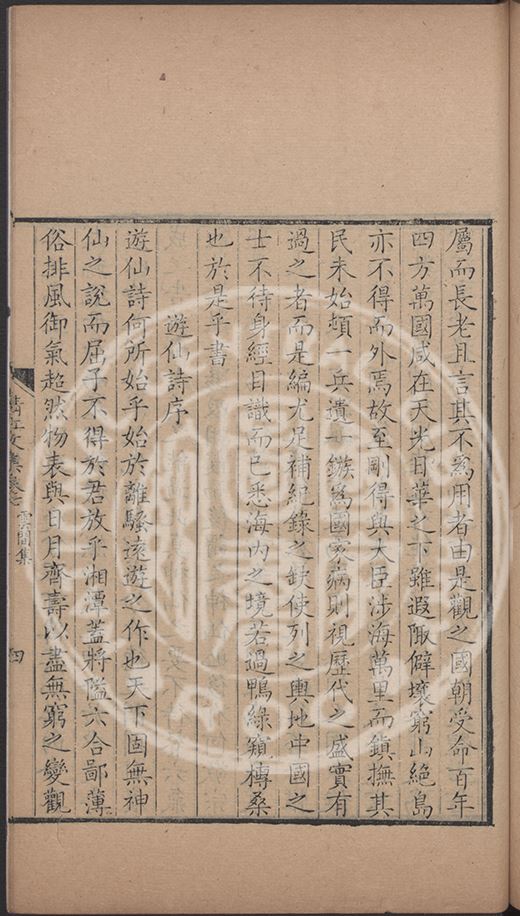 屬而長老且言其不為用者由是觀之國朝受命百年
四方萬國咸在天光日華之下雖遐陬僻壤窮山絕島
亦不得而外焉故至剛得與大臣涉海萬里而鎮撫其
民未始頓一兵遺一鏃為國家病則視歷代之盛實有
過之者而是編尤足補紀錄之缺使列之輿地中國之
士不待身經目識而已悉海內之境若過鴨綠窺榑桑
也於是乎書
遊仙詩序
遊仙詩何所始乎始於離騷遠遊之作也天下固無神
仙之說而屈子不得於君放乎湘潭蓋將隘六合鄙薄
俗排風御氣超然物表與日月齊壽以盡無窮之變觀
清江文集卷七 雲間集
四